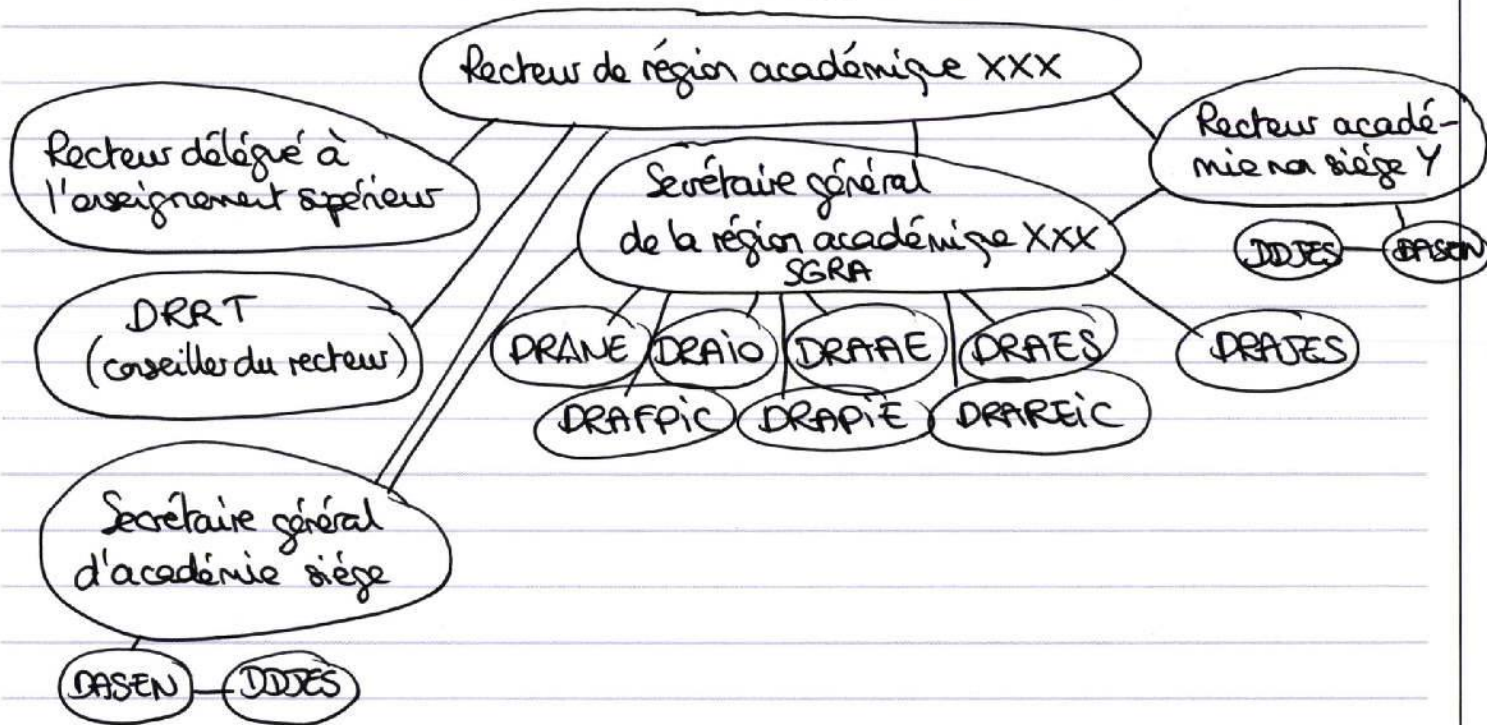 Recteur de région académique XXX
Recteur délégué à
l'enseignement supérieur
Recteur acadé-
mie non siège Y
Secrétaire général
de la région académique XXX
SGRA
DDJES
DASEN
DRRT
(conseiller du recteur)
DRANE
DRAIO
DRAAE
DRAES
DRAJES
DRAFPIC
DRAPIE
DRAREIC
Secrétaire général
d'académie siège
DASEN
DDJES